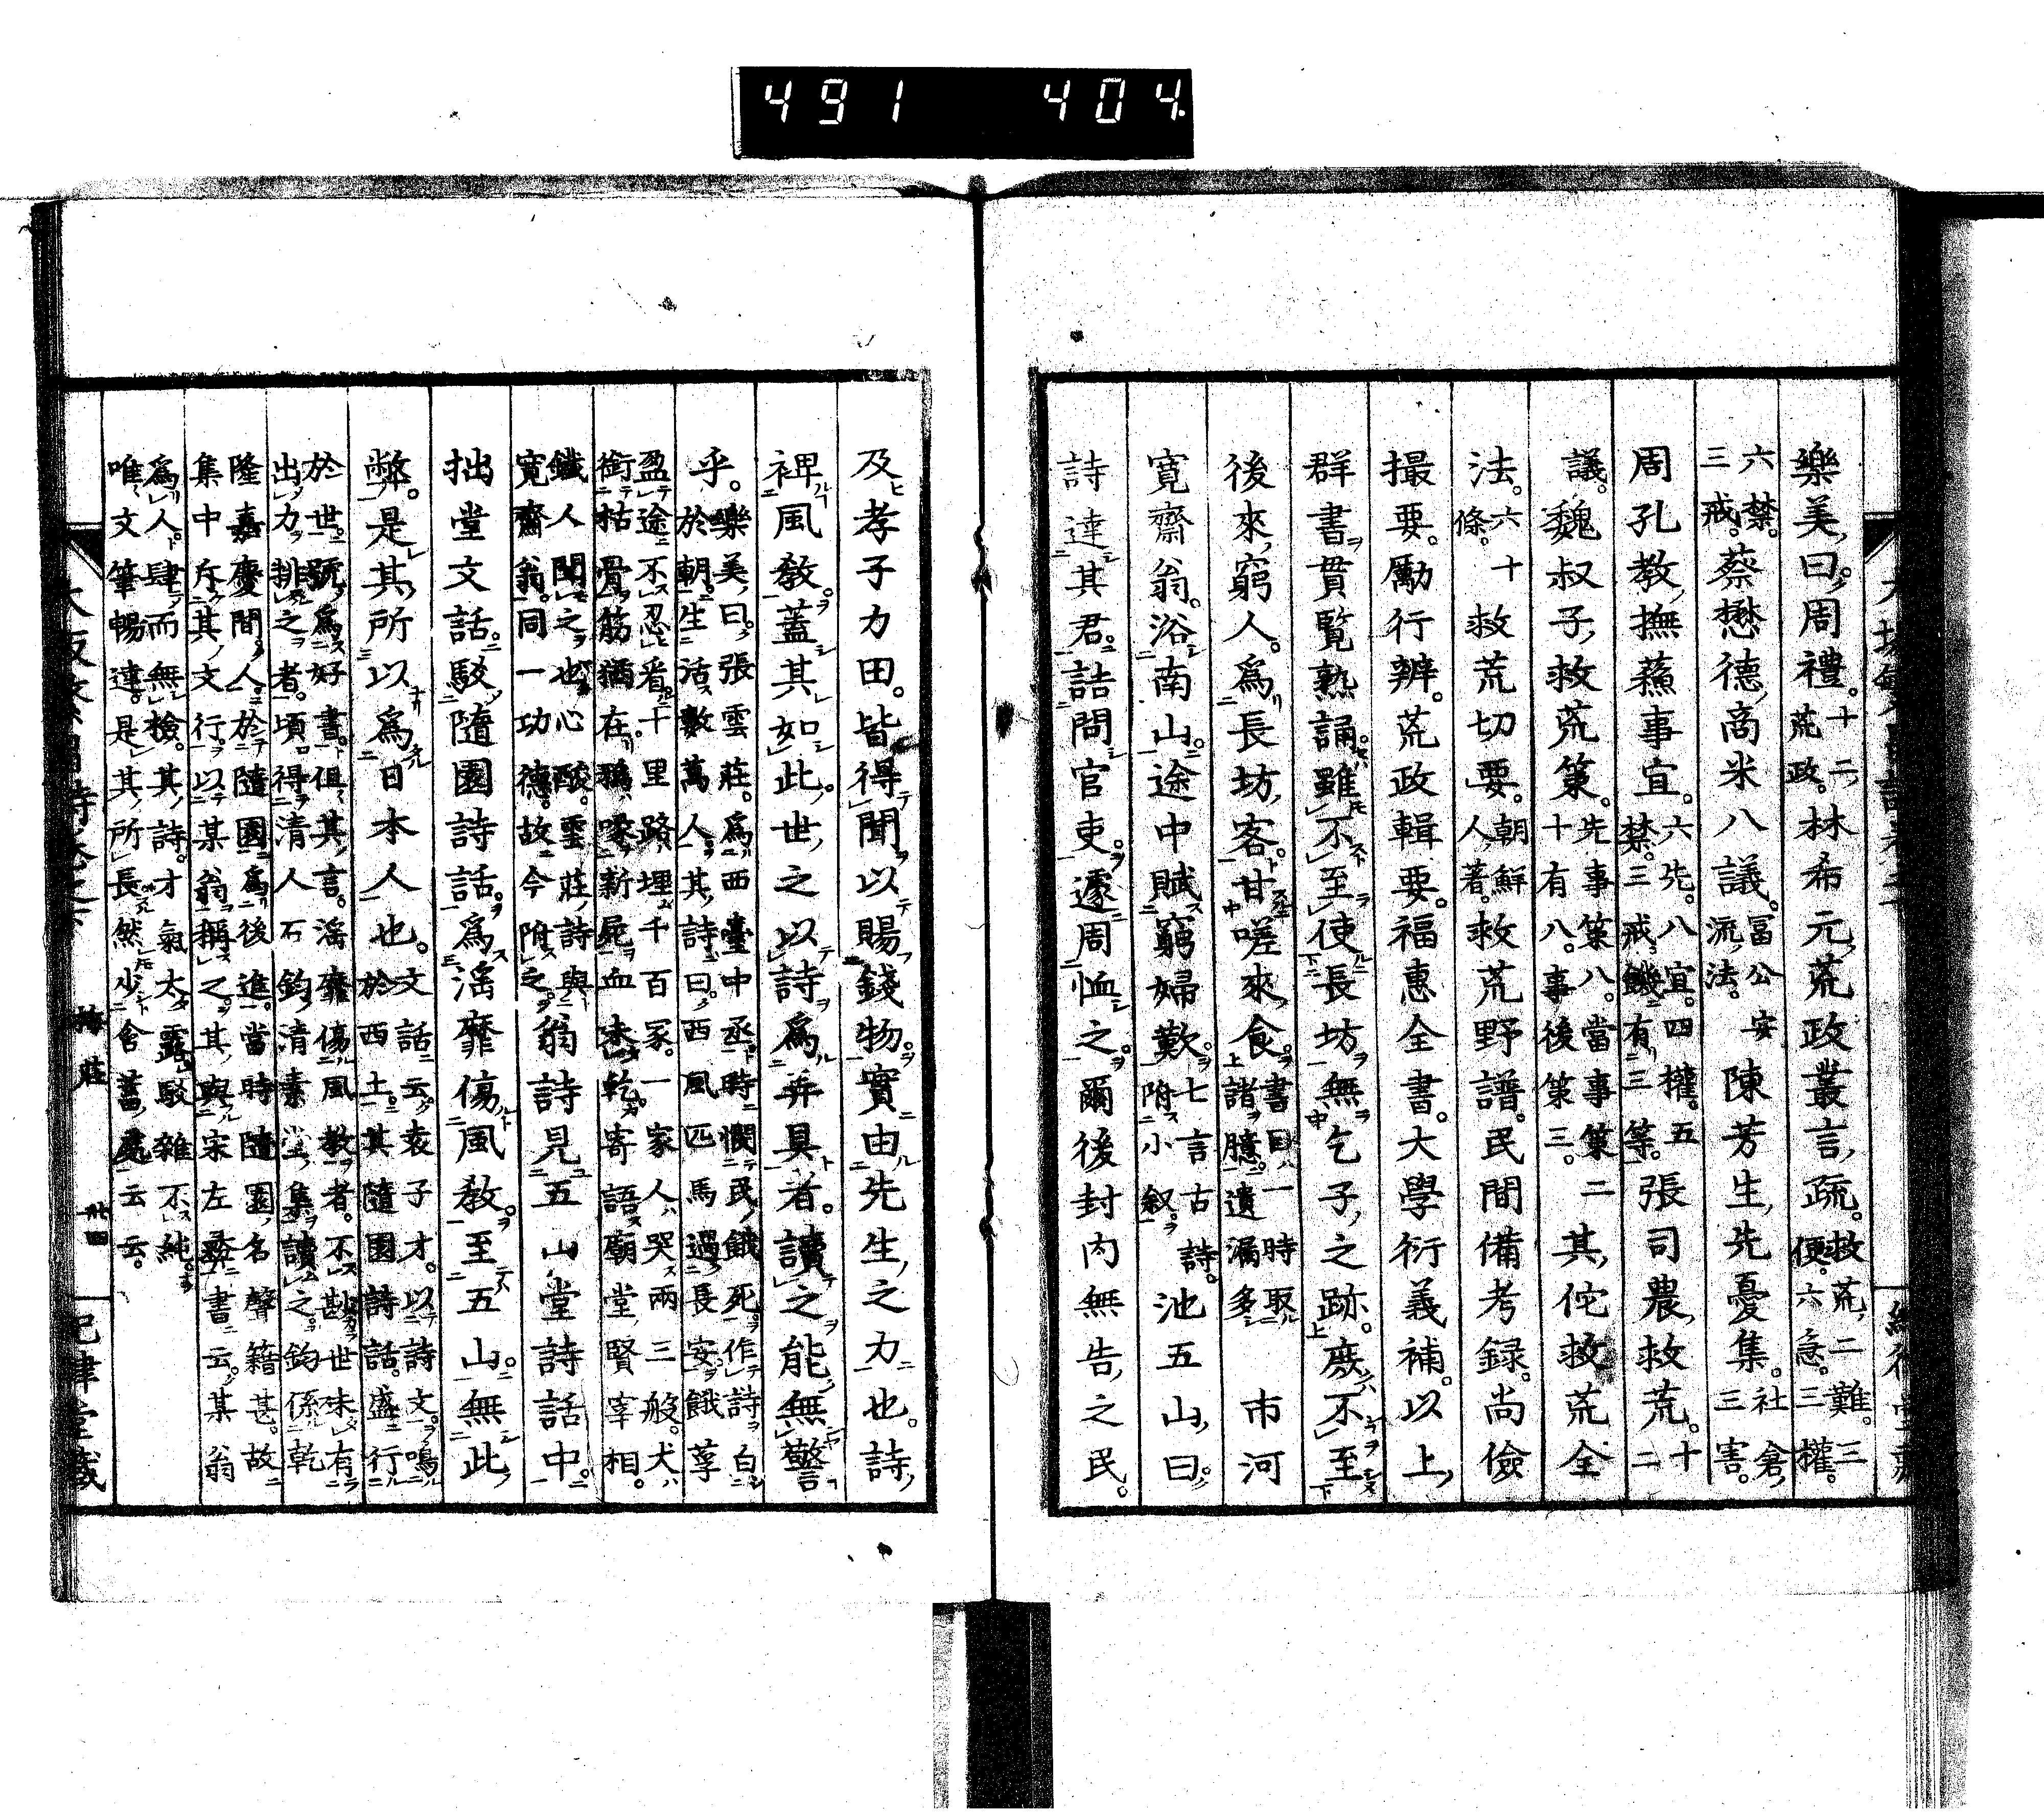 491 404
樂美曰。周禮。十二荒政。林希元荒政叢言疏。救荒二難。三便。六急。三權。
六禁。三戒。蔡懋德高米八議。冨公安流法。陳芳生先憂集。社倉三害。
周孔教撫蘓事宜。六先。八宜。四權。五禁。三戒。饑有三等。張司農救荒。十二
議。魏叔子救荒策。先事策八。當事策二十有八。事後策三。其佗救荒全
法。六十條。救荒切要。朝鮮人著。救荒野譜。民間備考録。尚儉
撮要。勵行辨。荒政輯要。福惠全書。大學衍義補。以上
群書貫覧熟誦。雖不至使長坊無乞子之跡。庶不至
後來窮人。爲長坊客甘嗟來食。書目一時取諸臆。遺漏多。市河
寛齋翁。浴南山。途中賦窮婦歎。七言古詩。附小叙。池五山曰。
詩達其君。詰問官吏。遽周恤之。爾後封内無告之民。
及孝子力田。皆得聞以賜錢物。實由先生之力也。詩
裨風教。蓋其如此。世之以詩爲弄具者。讀之能無警
乎。樂美曰。張雲莊。爲西臺中丞時。憫民餓死。作詩白於朝。生活數萬人。其詩曰。西風匹馬過長安。餓莩
盈途不忍看。十里路埋千百冢。一家人哭兩三般。犬銜枯骨筋猶在。鴉啄新屍血未乾。寄語廟堂賢宰相。
鐵人聞之也心酸。雲莊詩與寛齋翁。同一功德。故今附之。翁詩見五山堂詩話中。
拙堂文話。駁隨園詩話。爲滛靡傷風教。至五山。無此
弊。是其所以爲日本人也。文話云。袁子才。以詩文。鳴於西土。其隨園詩話。盛行
於世。號爲好書。但其言。滛靡傷風教者。不尠。世未有出力排之者。頃得清人石鈞清素堂集讀之。鈞係乾
隆嘉慶間人。於隨園爲後進。當時隨園名聲籍甚。故集中斥其文行。以某翁稱之。其與宋左彝書云。某翁
爲人。肆而無檢。其詩。才氣太露。駁雜不純。唯文筆暢達。是其所長。然少含蓄處云云。
梅莊
廿四